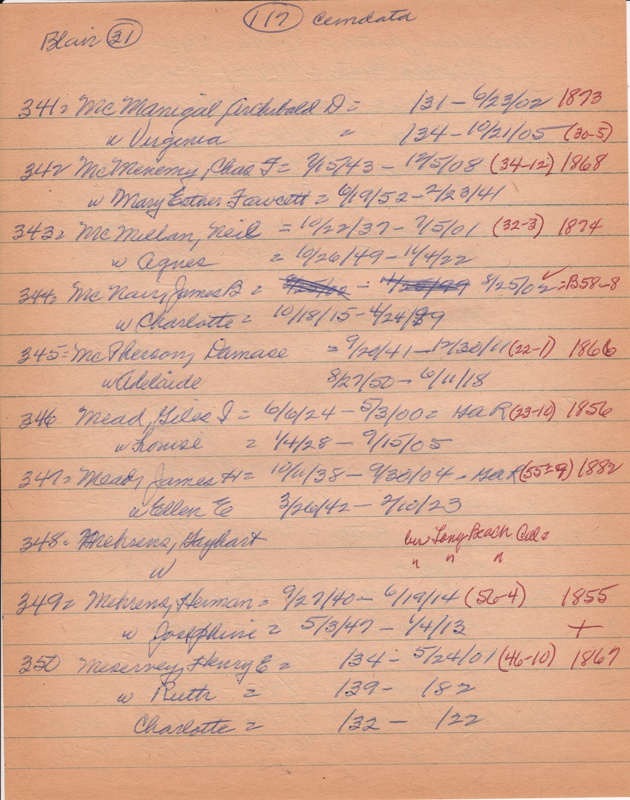 Blair (31) (117) Cemdata
341= McManigal, Archibald D = 131 - 6/23/02 1873
w Virginia = 134 - 10/21/05 (30-5)
342 McMenemy, Chas F = 7/15/43 - 12/5/08 (34-12) 1868
w Mary Esther Fawcett = 6/19/52 - 2/23/41
343= McMillan, Neil = 10/22/37 - 7/5/01 (32-3) 1874
w Agnes = 10/26/49 - 11/4/22
344= McNair, James B = 8/25/02 = B58-8
w Charlotte = 10/18/15 - 4/24/99
345= McPherson, Damase = 9/20/41 - 12/30/11 (22-1) 1866
w Adelaide 8/27/50 - 6/11/18
346 Mead, Giles I = 6/6/24 - 5/3/00 = HaR (23-10) 1856
w Louise = 1/4/28 - 9/15/05
347= Mead, James H = 10/11/38 - 9/30/04 - HaR (55-9) 1882
w Ellen E 3/26/42 - 2/10/23
348= Mehrens, Hayhart bur Long Beach Cal=
w " " "
349= Mehrens, Herman = 9/27/40 - 6/19/14 (56-4) 1855
w Josephine = 5/3/47 - 1/4/13 +
350 Meserney, Henry E = 134 - 5/24/01 (46-10) 1867
w Ruth = 139 - 182
Charlotte = 132 - 122